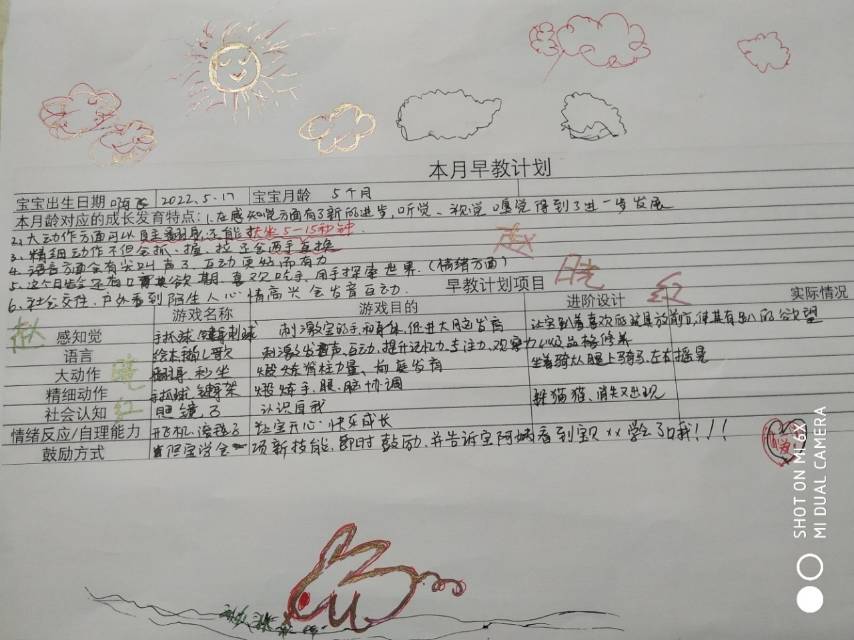 本月早教计划
宝宝出生日期 2022.5.17 宝宝月龄 5个月
本月龄对应的成长发育特点:1.在感知觉方面有了新的进步,听觉、视觉、嗅觉得到了进一步发展
2.大动作方面可以自主翻身还能扶坐5-15秒钟.
3.精细动作不但会抓、握、拉还会两手互换
4.语言方面会有尖叫声了、互动更好而有力
5.这个月龄会还有口欲期.喜欢吃手,用手探索世界.(情绪方面)
6.社会交往.户外看到陌生人心情高兴会发音互动.
赵
晓
红
早教计划项目
游戏名称 游戏目的 进阶设计 实际情况
赵
感知觉 手抓球、触觉刺球 刺激宝宝的手和身体,促进大脑发育 让宝宝趴着喜欢的玩具放前方,使其有趴的欲望
语言 绘本、儿歌 刺激发音、互动,提升记忆力、专注力、观察力以及品格修养
大动作 晓 翻身、独坐 锻炼脊柱力量、前庭发育 坐着骑从腿上骑了、左右摇晃
精细动作 手抓球、健身架 锻炼手、眼、脑协调
社会认知 红 照镜子 认识自我 躲猫猫、消失又出现
情绪反应/自理能力 开飞机、 让宝宝开心、快乐成长
鼓励方式 但宝宝学会一项新技能,即时鼓励,并告诉宝阿姨看到宝贝××学会了哦!!!
SHOT ON MI 6X
MI DUAL CAMERA